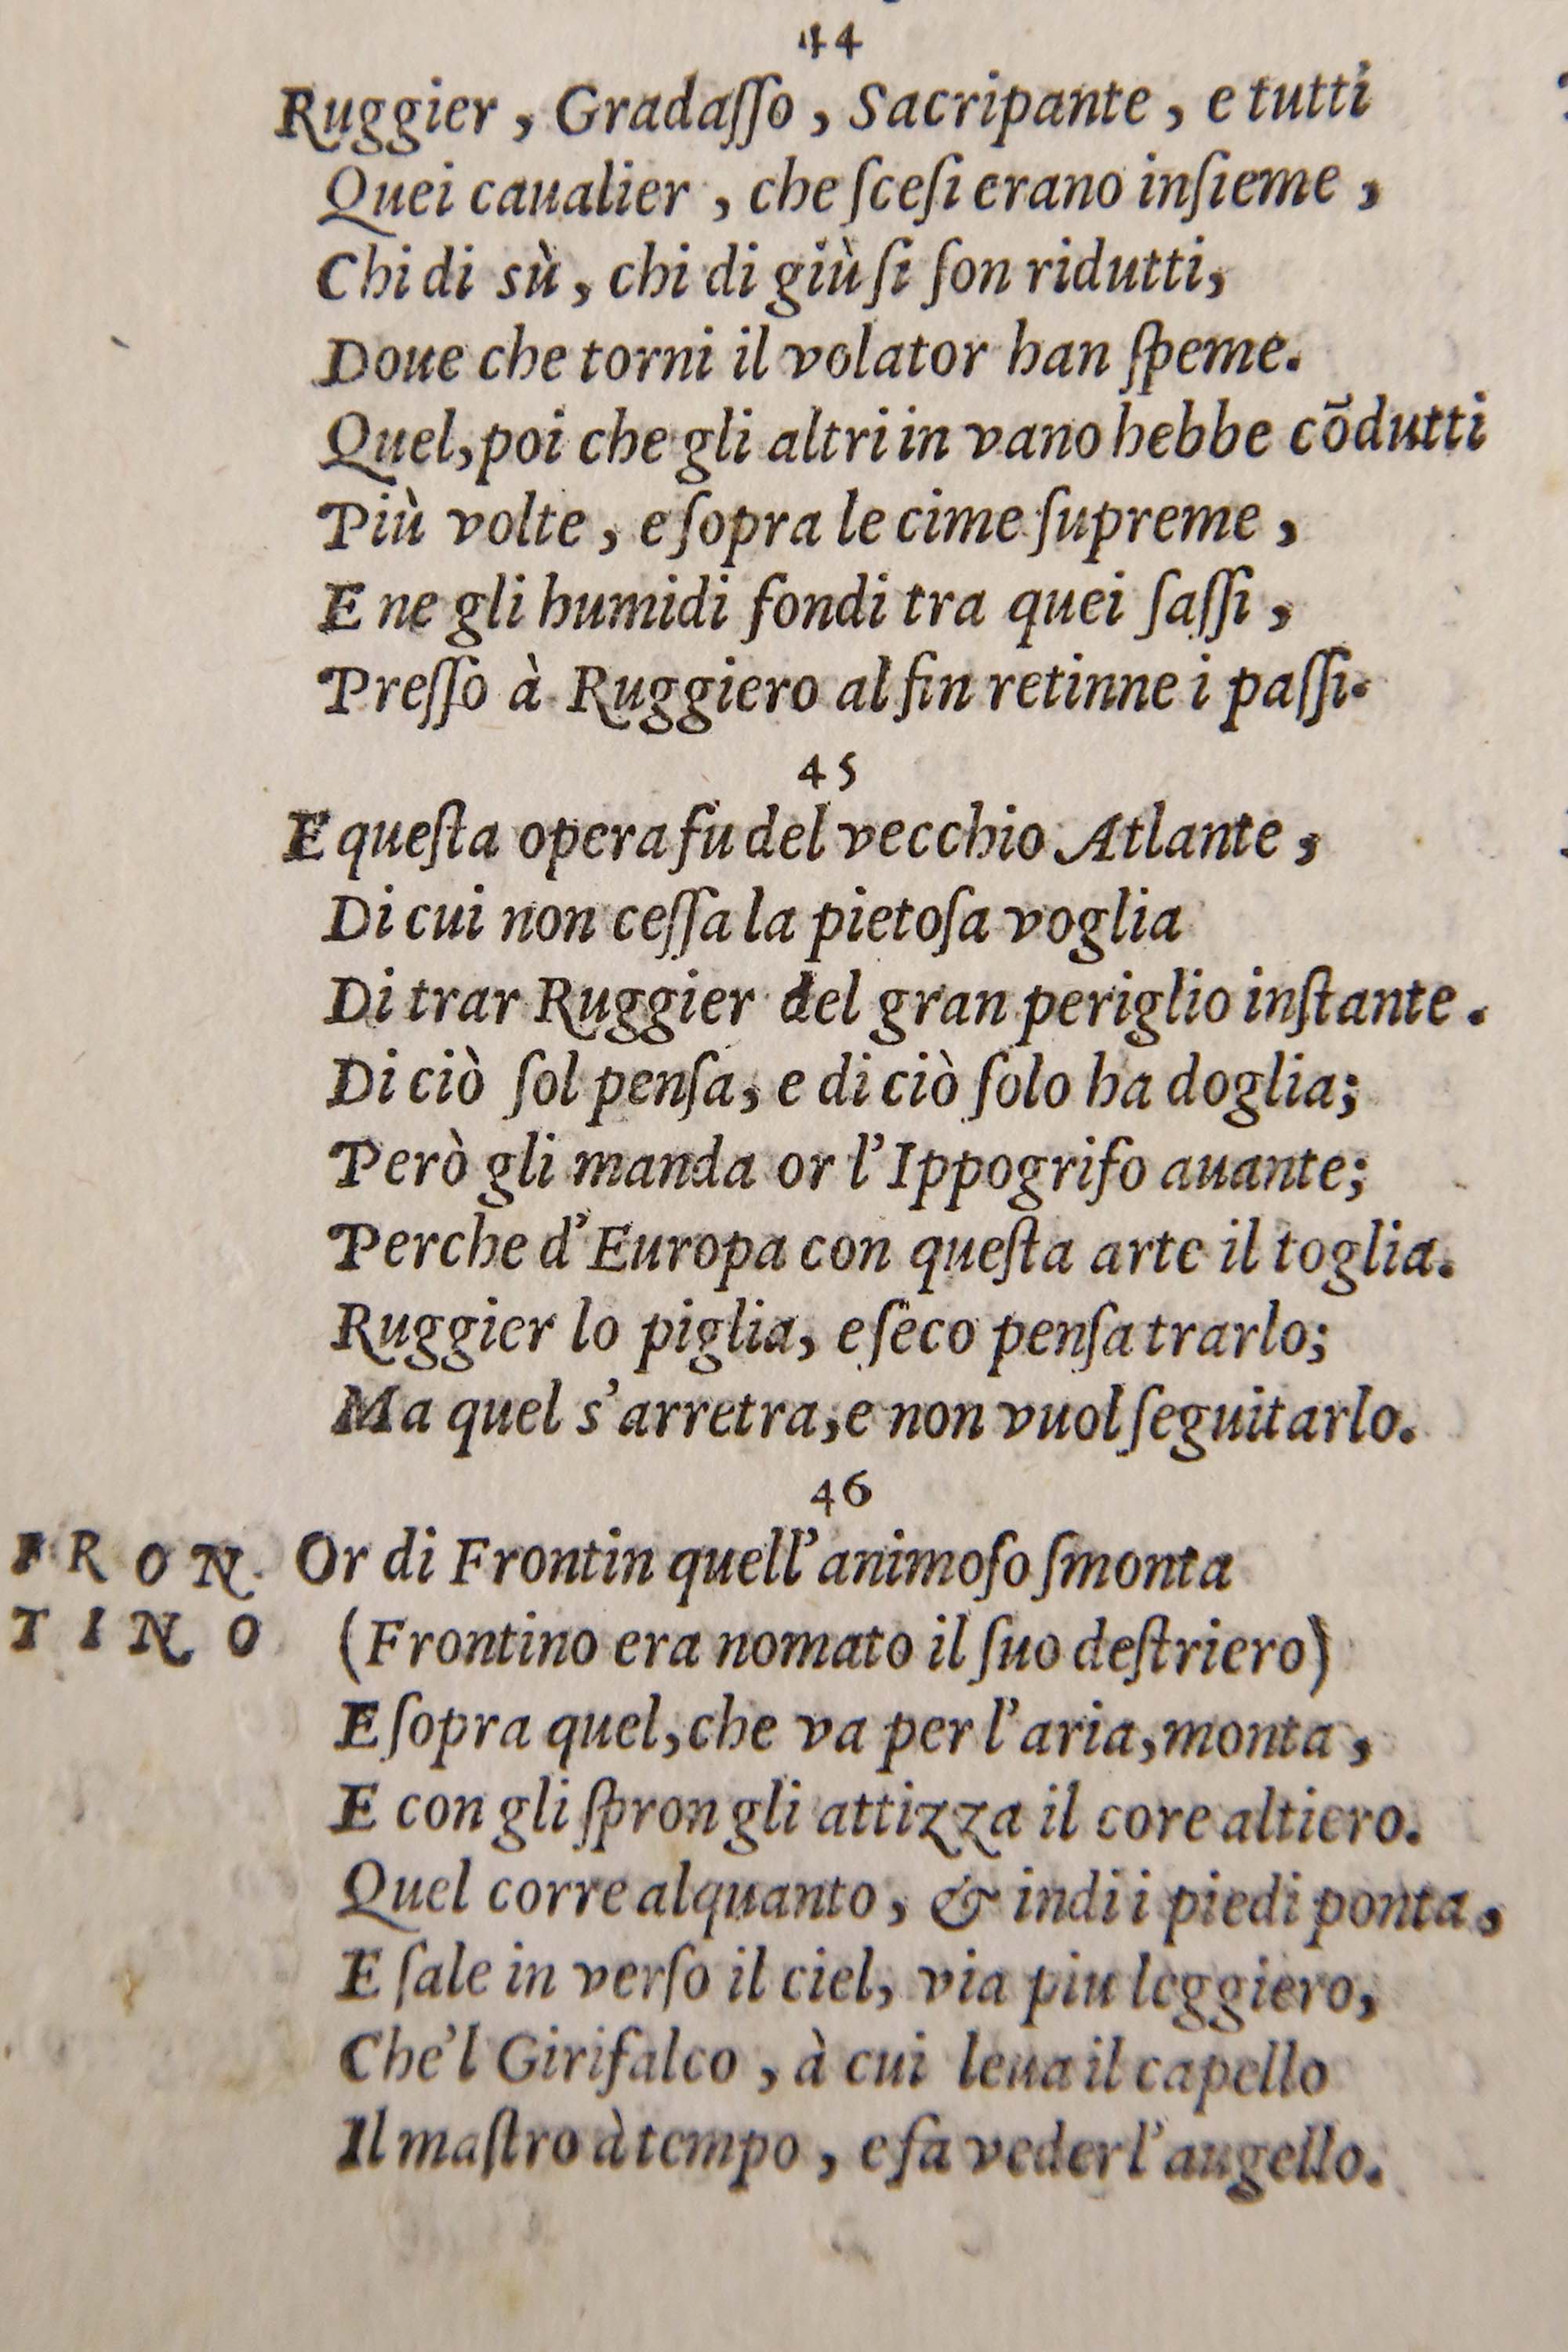 44
Ruggier, Gradaſſo, Sacripante, e tutti
Quei caualier, che ſceſi erano inſieme,
Chi di sù, chi di giù ſi ſon ridutti,
Doue che torni il volator han ſpeme.
Quel, poi che gli altri in vano hebbe cōdutti
Più volte, e ſopra le cime ſupreme,
E ne gli humidi fondi tra quei ſaſſi,
Preſſo à Ruggiero al fin retinne i paſſi.
45
E queſta opera fu del vecchio Atlante,
Di cui non ceſſa la pietoſa voglia
Di trar Ruggier del gran periglio inſtante.
Di ciò ſol penſa, e di ciò ſolo ha doglia;
Però gli manda or l'Ippogrifo auante;
Perche d'Europa con queſta arte il toglia.
Ruggier lo piglia, e ſeco penſa trarlo;
Ma quel s'arretra, e non vuol ſeguitarlo.
46
FRON
TINO
Or di Frontin quell'animoſo ſmonta
(Frontino era nomato il ſuo deſtriero)
E ſopra quel, che va per l'aria, monta,
E con gli ſpron gli attizza il core altiero.
Quel corre alquanto, & indi i piedi ponta,
E ſale in verſo il ciel, via piu leggiero,
Che'l Girifalco, à cui leua il capello
Il maſtro à tempo, e fa veder l'augello.